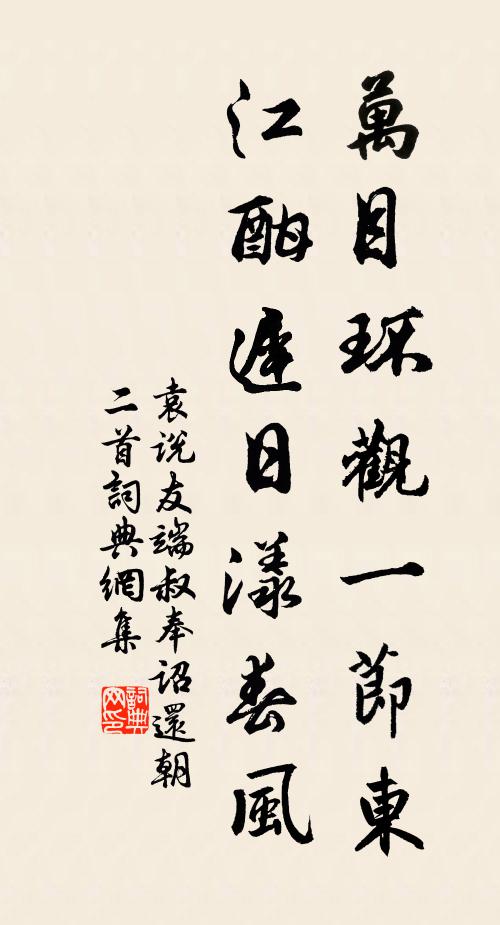 萬目環觀一節東
江酣遲日漾春風
袁說友端叔奉詔還朝
二首詞典網集
詞典網印